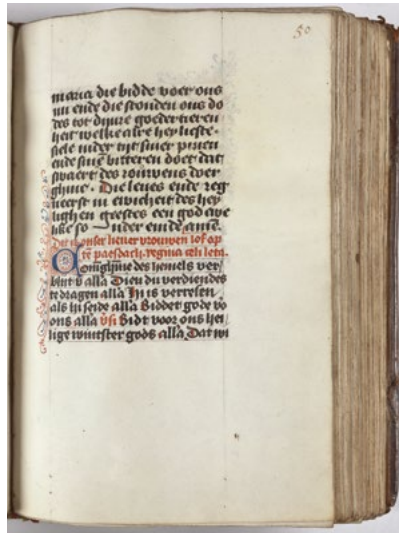 50
maria die bidde voer ons
nu ende die stonden ons do
des tot dijnre goedertieren
heit welke alre heylichste
siele inder tijt sijnre pinen
ende sinē bitteren doet dat
swaert des rouwens doer
ghinc. Die leues ende reg
neerst in ewicheit des hey
lighen gheestes een god ewe
like so nder einde amē.
Dit is onser lieuer vrouwen lof op
tē paeschdach. regina celi leta.
Coninghinne des hemels ver
blijt v alla Dien du verdiendes
te draghen alla Hi is verresen
als hi seide alla Biddet gode vo
ons alla vsi Bidt voor ons hei
lige moeder gods alla Dat wi